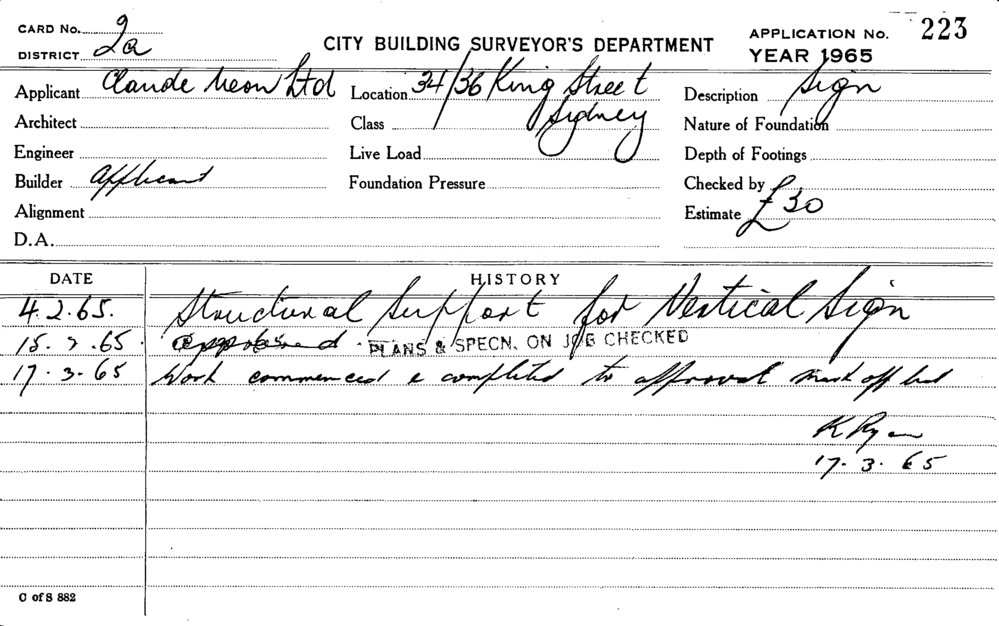 CARD No. 2
DISTRICT 2a
CITY BUILDING SURVEYOR'S DEPARTMENT
APPLICATION No. 223
YEAR 1965
Applicant Claude Neon Ltd
Location 34/36 King Street Sydney
Description Sign
Architect
Class
Nature of Foundation
Engineer
Live Load
Depth of Footings
Builder Applicant
Foundation Pressure
Checked by
Alignment
Estimate £30
D.A.
DATE HISTORY
4.2.65. Structural Support for Vertical Sign
15.2.65. approved. PLANS & SPECN. ON JOB CHECKED
17.3.65 Work commenced & completed to approval mark off
K Ryan
17.3.65
C of S 882